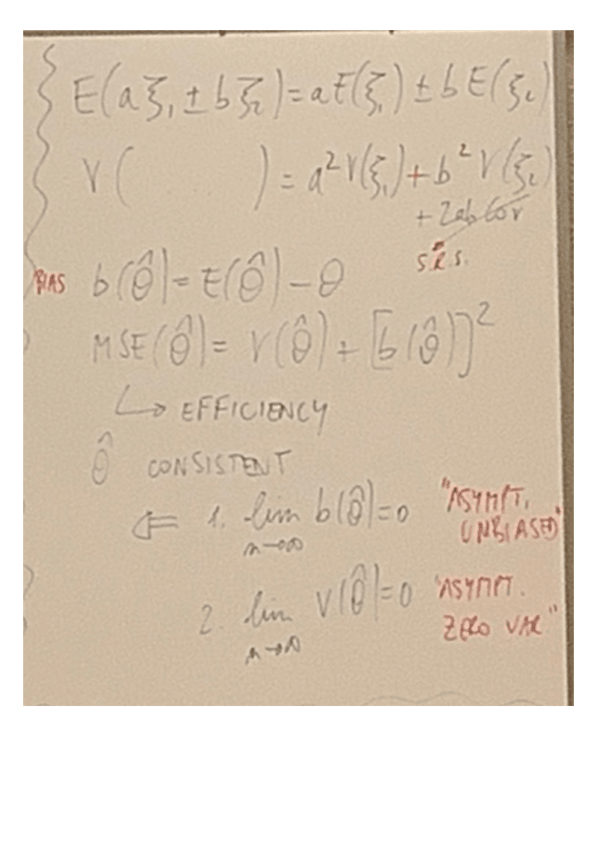 E(aξ₁ ± bξ₂) = aE(ξ₁) ± bE(ξ₂)
V( ) = a²V(ξ₁) + b²V(ξ₂)
+ 2ab Cov
s.r.s.
BIAS b(θ̂) = E(θ̂) − θ
MSE(θ̂) = V(θ̂) + [b(θ̂)]²
↳ EFFICIENCY
θ̂ CONSISTENT
⇐ 1. lim b(θ̂) = 0 "ASYMPT.
n→∞ UNBIASED"
2. lim V(θ̂) = 0 "ASYMPT.
n→∞ ZERO VAR."